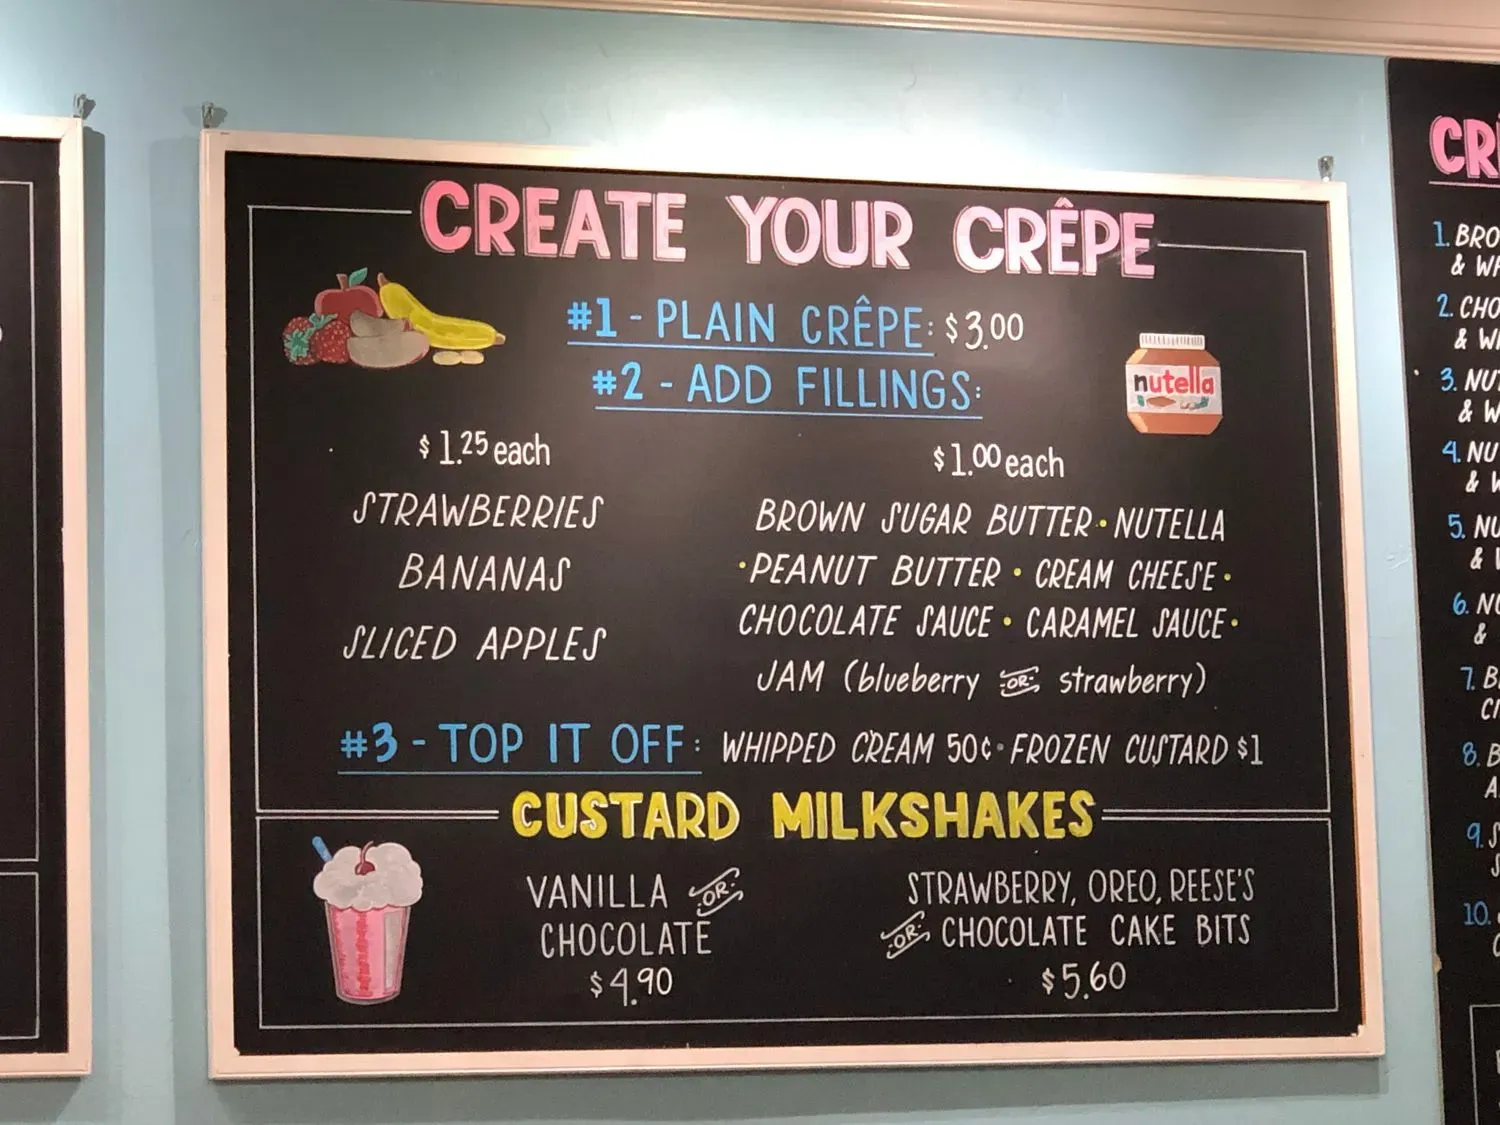 CREATE YOUR CRÊPE
#1 - PLAIN CRÊPE: $3.00
#2 - ADD FILLINGS:
nutella
$1.25 each
STRAWBERRIES
BANANAS
SLICED APPLES
$1.00 each
BROWN SUGAR BUTTER • NUTELLA
• PEANUT BUTTER • CREAM CHEESE •
CHOCOLATE SAUCE • CARAMEL SAUCE •
JAM (blueberry OR strawberry)
#3 - TOP IT OFF: WHIPPED CREAM 50¢ • FROZEN CUSTARD $1
CUSTARD MILKSHAKES
VANILLA OR
CHOCOLATE
$4.90
STRAWBERRY, OREO, REESE'S
OR CHOCOLATE CAKE BITS
$5.60
1.
&
2.
&
3.
&
4.
&
5.
&
6.
&
7.
8.
9.
10.